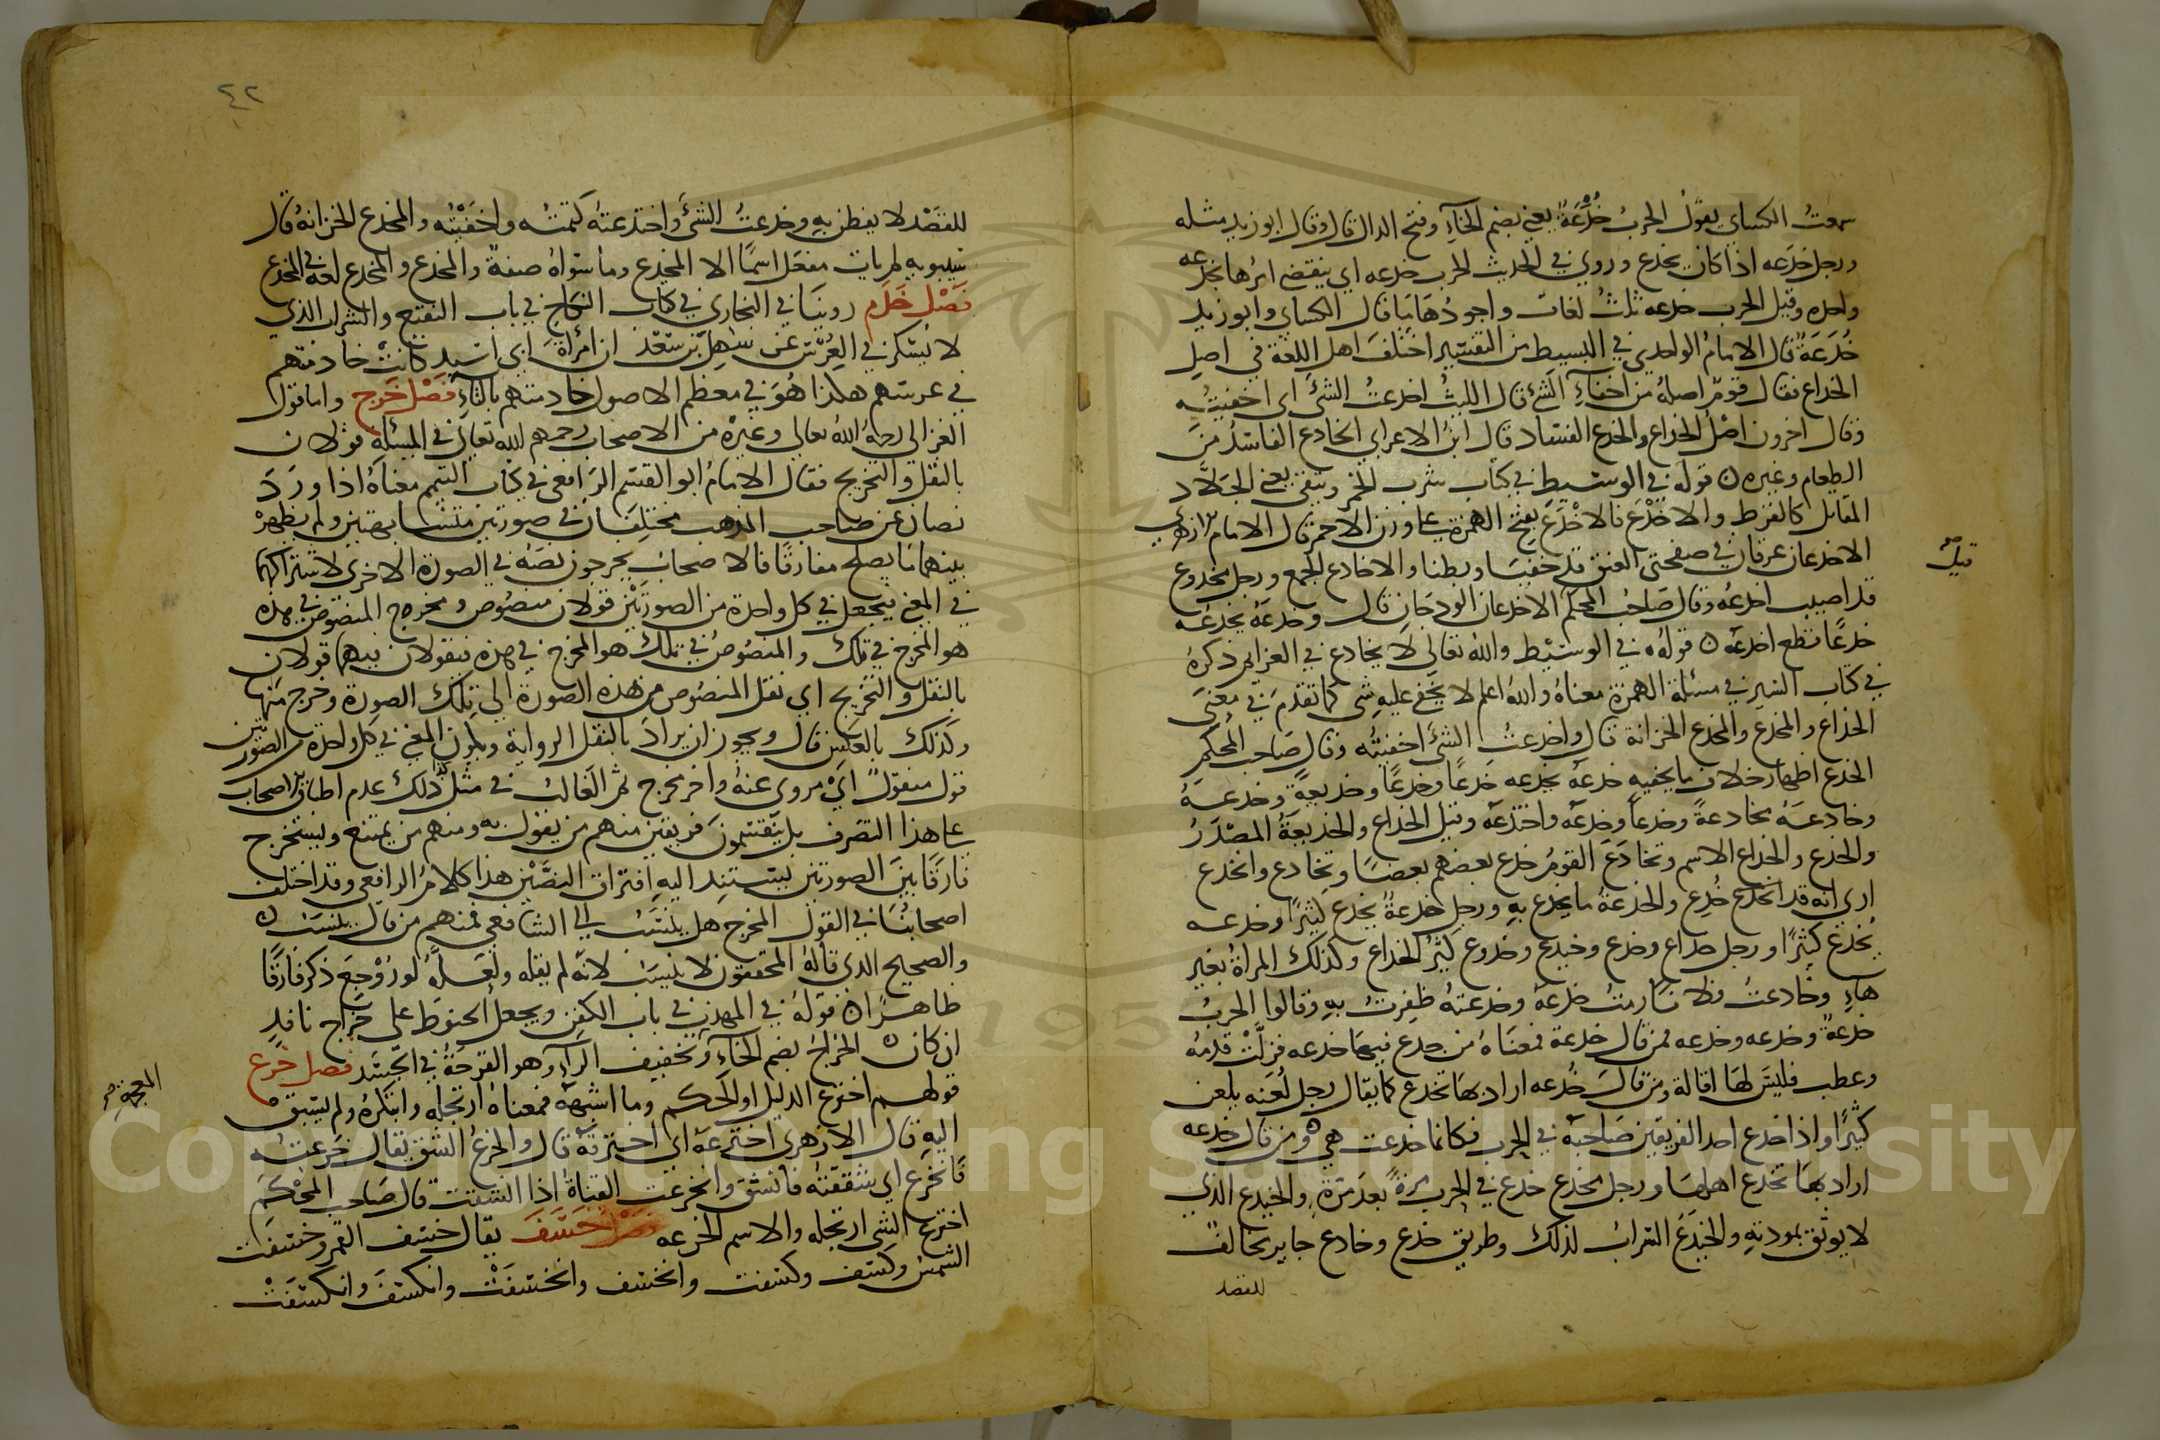 سمعت الكسائي يقول الحرب خُدَعَة يعني بضم الخاء وفتح الدال قال وقال ابو زيد مثله
ورجل خدعه اذا كان يخدع وروي في الحديث الحرب خدعه اي ينقضي امرها بخدعه
واحده وقيل الحرب خدعه ثلاث لغات واجودها ما قال الكساي وابو زيد
خُدَعَة قال الامام الواحدي في البسيط من التفسير اختلف اهل اللغة في اصل
الخداع فقال قوم اصله من اخفاء الشئ قال الليث اخدعت الشئ اى اخفيته
وقال اخرون اصل الخداع والخدع الفساد قال ابن الاعرابي الخادع الفاسد من
الطعام وغيره ن قوله في الوسيط في كتاب شرب الخمر ويتقي يعني الجلاد
المقاتل كالقرط والاخدع فالاخدع بفتح الهمزة على وزن الاحمر قال الامام الازهري
قيل
الاخدعان عرقان في صفحتى العنق قد خفيا وبطنا والاخادع الجمع ورجل مخدوع
قد اصيب اخدعه وقال صاحب المحكم الاخدعان الودجان قال وخدعه يخدعه
خدعًا قطع اخدعه ن قوله في الوسيط والله تعالى لا يخادع في العزايم ذكره
في كتاب السير في مسئلة الهمزة معناه والله اعلم لا يخفى عليه شى كما تقدم في معنى
الخداع والمخدع والمخدع الخزانة قال واخدعت الشئ اخفيته وقال صاحب المحكم
الخدع اظهار خلاف ما يخفيه خدعه يخدعه خدعًا وخدعًا وخديعة وخدعة
وخادعه مخادعة وخدعا وخدعه واختدعه وقيل الخداع والخديعة المصدر
والخدع والخداع الاسم وتخادع القوم خدع بعضهم بعضا وتخادع وانخدع
ارى انه قد انخدع خُدِع والخدعة ما يخدع به ورجل خدعة يخدع كثيرًا وخدعه
يُخدع كثيرًا ورجل خداع وخدع وخيدع وخدوع كثير الخداع وكذلك المراة بغير
هاء وخادعت فلانا رمت خدعه وخدعته ظفرت به وقالوا الحرب
خدعة وخدعه وخدعه فمن قال خدعة فمعناه من خدع فيها خدعه فزلت قدمه
وعطب فليس لها اقالة ومن قال خُدعه اراد بها تخدع كما يقال رجل لُعنه يلعن
كثيرًا واذا خدع احد الفريقين صاحبه في الحرب فكانما خدعت هي ومن قال خدعه
اراد بها تخدع اهلها ورجل مخدع خدع في الحرب مرة بعد مرة والخيدع الذي
لا يوثق بمودته والخيدع السراب لذلك وطريق خدع وخادع جاير مخالف
للقصد
٤٢
للقصد لا يفطن به وخدعت الشئ واختدعته كتمته واخفيته والمخدع الخزانة قال
سيبويه لم يات مفعل اسمًا الا المخدع وما سواه صفة والمخدع والمخدع لغة في المخدع
فصل خدم روينا في البخاري في كتاب النكاح في باب النقيع والشراب الذي
لا يُسكر في العرس عن سهل بن سعد ان امراة ابي اسيد كانت خادمتهم
في عرسهم هكذا هو في معظم الاصول خادمتهم بالتاء فصل خرج واما قول
الغزالي رحمه الله تعالى وغيره من الاصحاب رحمهم الله تعالى في المسئلة قولان
بالنقل والتخريج فقال الامام ابو القسم الرافعي في كتاب التيمم معناه اذا ورد
نصان عن صاحب المذهب مختلفان في صورتين متشابهتين ولم يظهر
بينهما ما يصلح مفارقًا فالاصحاب يخرجون نصه في الصورة الاخرى لاشتراكهما
في المعنى فيجعل في كل واحدة من الصورتين قولان منصوص ومخرج المنصوص في هذه
هو المخرج في تلك والمنصوص في تلك هو المخرج في هذه فيقولان فيهما قولان
بالنقل والتخريج اي نقل المنصوص من هذه الصورة الى تلك الصورة وخرج منها
وكذلك بالعكس قال ويجوز ان يراد بالنقل الرواية ويكون المعنى في كل واحدة من الصورتين
قول منقول اي مروي عنه واخر مخرج ثم الغالب في مثل ذلك عدم اطباق الاصحاب
على هذا التصرف بل ينقسمون فريقين منهم من يقول به ومنهم من يمتنع ويستخرج
فارقًا بين الصورتين ليستند اليه افتراق النصين هذا كلام الرافعي وقد اختلف
اصحابنا في القول المخرج هل ينسب الى الشافعي فمنهم من قال ينسب ن
والصحيح الذي قاله المحققون لا ينسب لانه لم يقله ولعله لو روجع ذكر فارقًا
ظاهرًا ن قوله في المهذب في باب الكفن ويجعل الحنوط على خُراج نافذ
ان كان ن الخراج بضم الخاء وتخفيف الراء وهو القرحة في الجسد فصل خرع
المعجمة
قولهم اخترع الدليل او الحكم وما اشبهه فمعناه ارتجله وابتكره ولم يسبق
اليه قال الازهري اخترعه اى اخترقه قال والخرع الشق يقال خرعته
فانخرع اي شققته فانشق وانخرعت القناة اذا انشقت قال صاحب المحكم
اخترع الشى ارتجله والاسم الخرعه فصل خسف يقال خسف القمر وخسفت
الشمس وكسف وكسفت وانخسف وانخسفت وانكسف وانكسفت